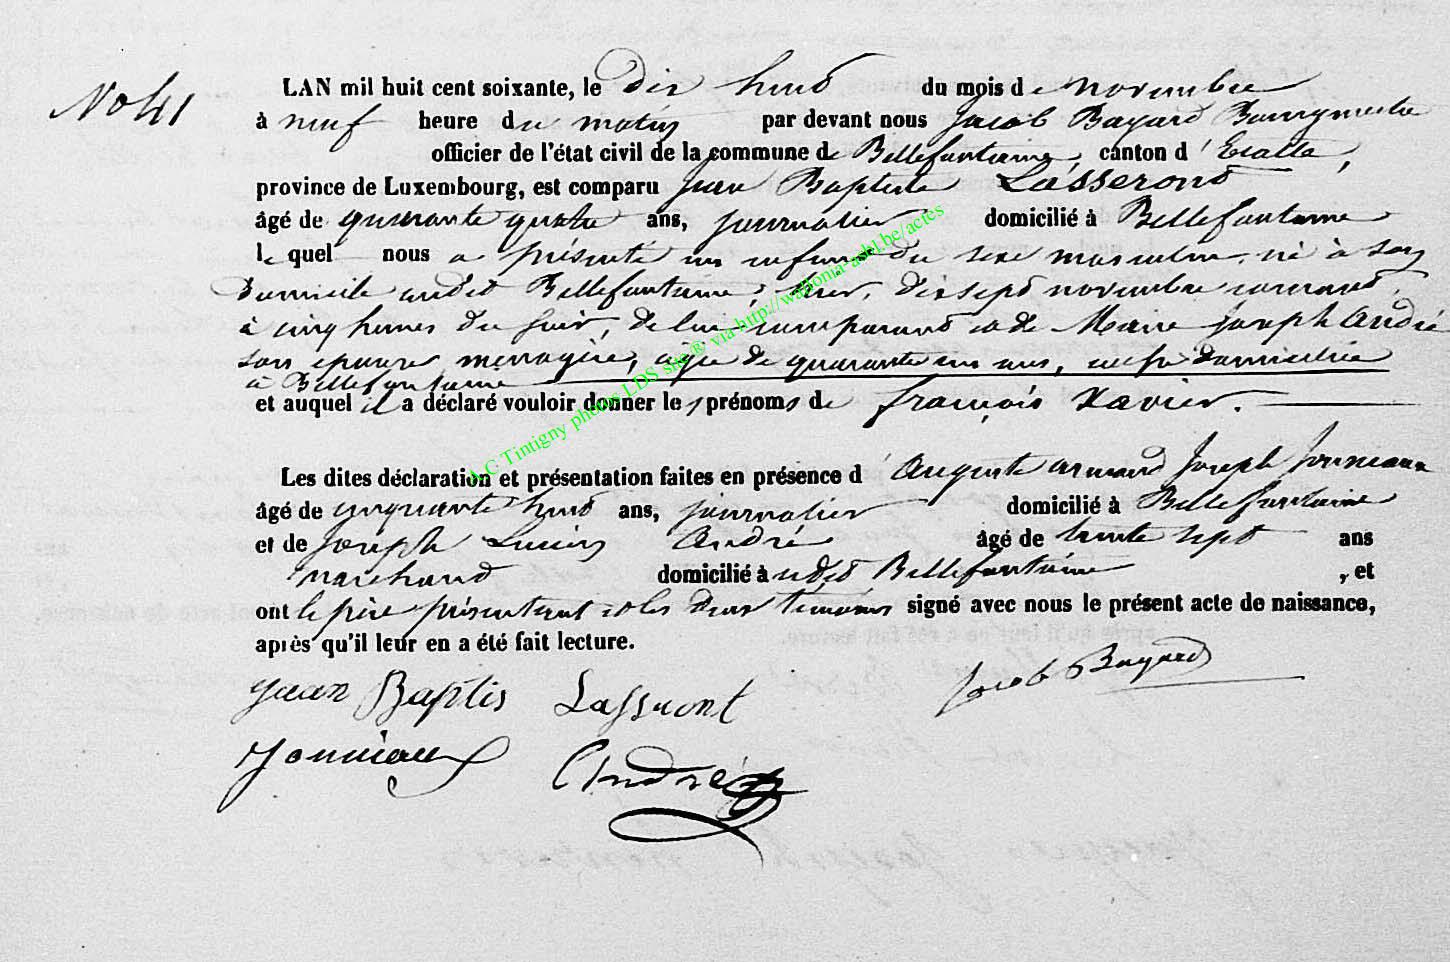 No 41
LAN mil huit cent soixante, le dix huit du mois de novembre
à neuf heure du matin par devant nous Jacob Bayard Bourgmestre
officier de l'état civil de la commune de Bellefontaine, canton d'Etalle,
province de Luxembourg, est comparu Jean Baptiste Lasseront
âgé de quarante quatre ans, journalier domicilié à Bellefontaine
lequel nous a présenté un enfant du sexe masculin, né à son
domicile audit Bellefontaine, hier, dix sept novembre courant,
à cinq heures du soir, de lui comparant et de Marie Joseph André
son épouse, ménagère, agée de quarante un ans, aussi domiciliée
à Bellefontaine
et auquel il a déclaré vouloir donner les prénoms de françois Xavier.
Les dites déclaration et présentation faites en présence d'Auguste armand Joseph Jonneaux
âgé de cinquante huit ans, journalier domicilié à Bellefontaine
et de Joseph Lucien André âgé de trente sept ans
marchand domicilié à udit Bellefontaine, et
ont le père présentant et les deux témoins signé avec nous le présent acte de naissance,
après qu'il leur en a été fait lecture.
Jacob Bayard
Jean Baptis Lasseront
Jonniaux André
A.C Tintigny photos LDS site® via http://wallonia-asbl.be/actes